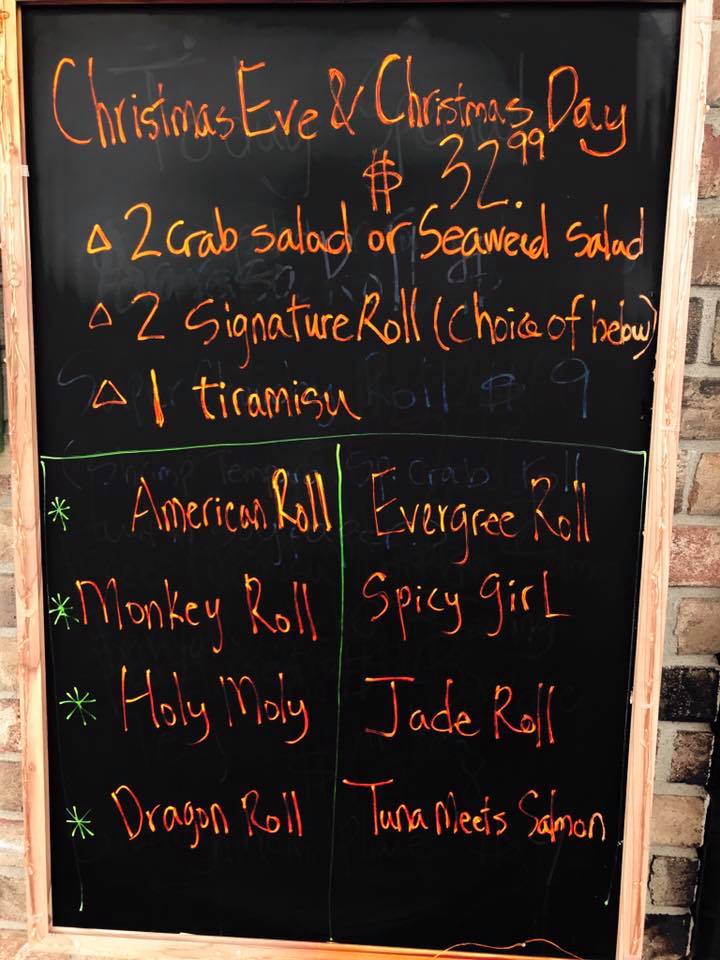 Christmas Eve & Christmas Day
$ 32.99
△ 2 crab salad or Seaweed salad
△ 2 Signature Roll (Choice of below)
△ 1 tiramisu
* American Roll
* Monkey Roll
* Holy Moly
* Dragon Roll
Evergree Roll
Spicy girL
Jade Roll
Tuna Meets Salmon